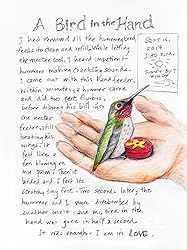 A Bird in the Hand
I had removed all the hummingbird
feeders to clean and refill. While letting
the nectar cool, I heard impatient
hummers making crackling sounds.
I came out with this hand feeder.
Within minutes, a hummer came
and did two feet flybys,
before dipping his bill into
the nectar
feeder, still
beating his
wings. It
felt like a
fan blowing on
my skin! Then it
landed and I felt its
scratchy tiny feet. Two seconds later, the
hummer and I were divebombed by
another male, and my bird in the
hand was gone in half a second.
It was enough. I am in LOVE.
Sept 15,
2019
Sunny but
windy